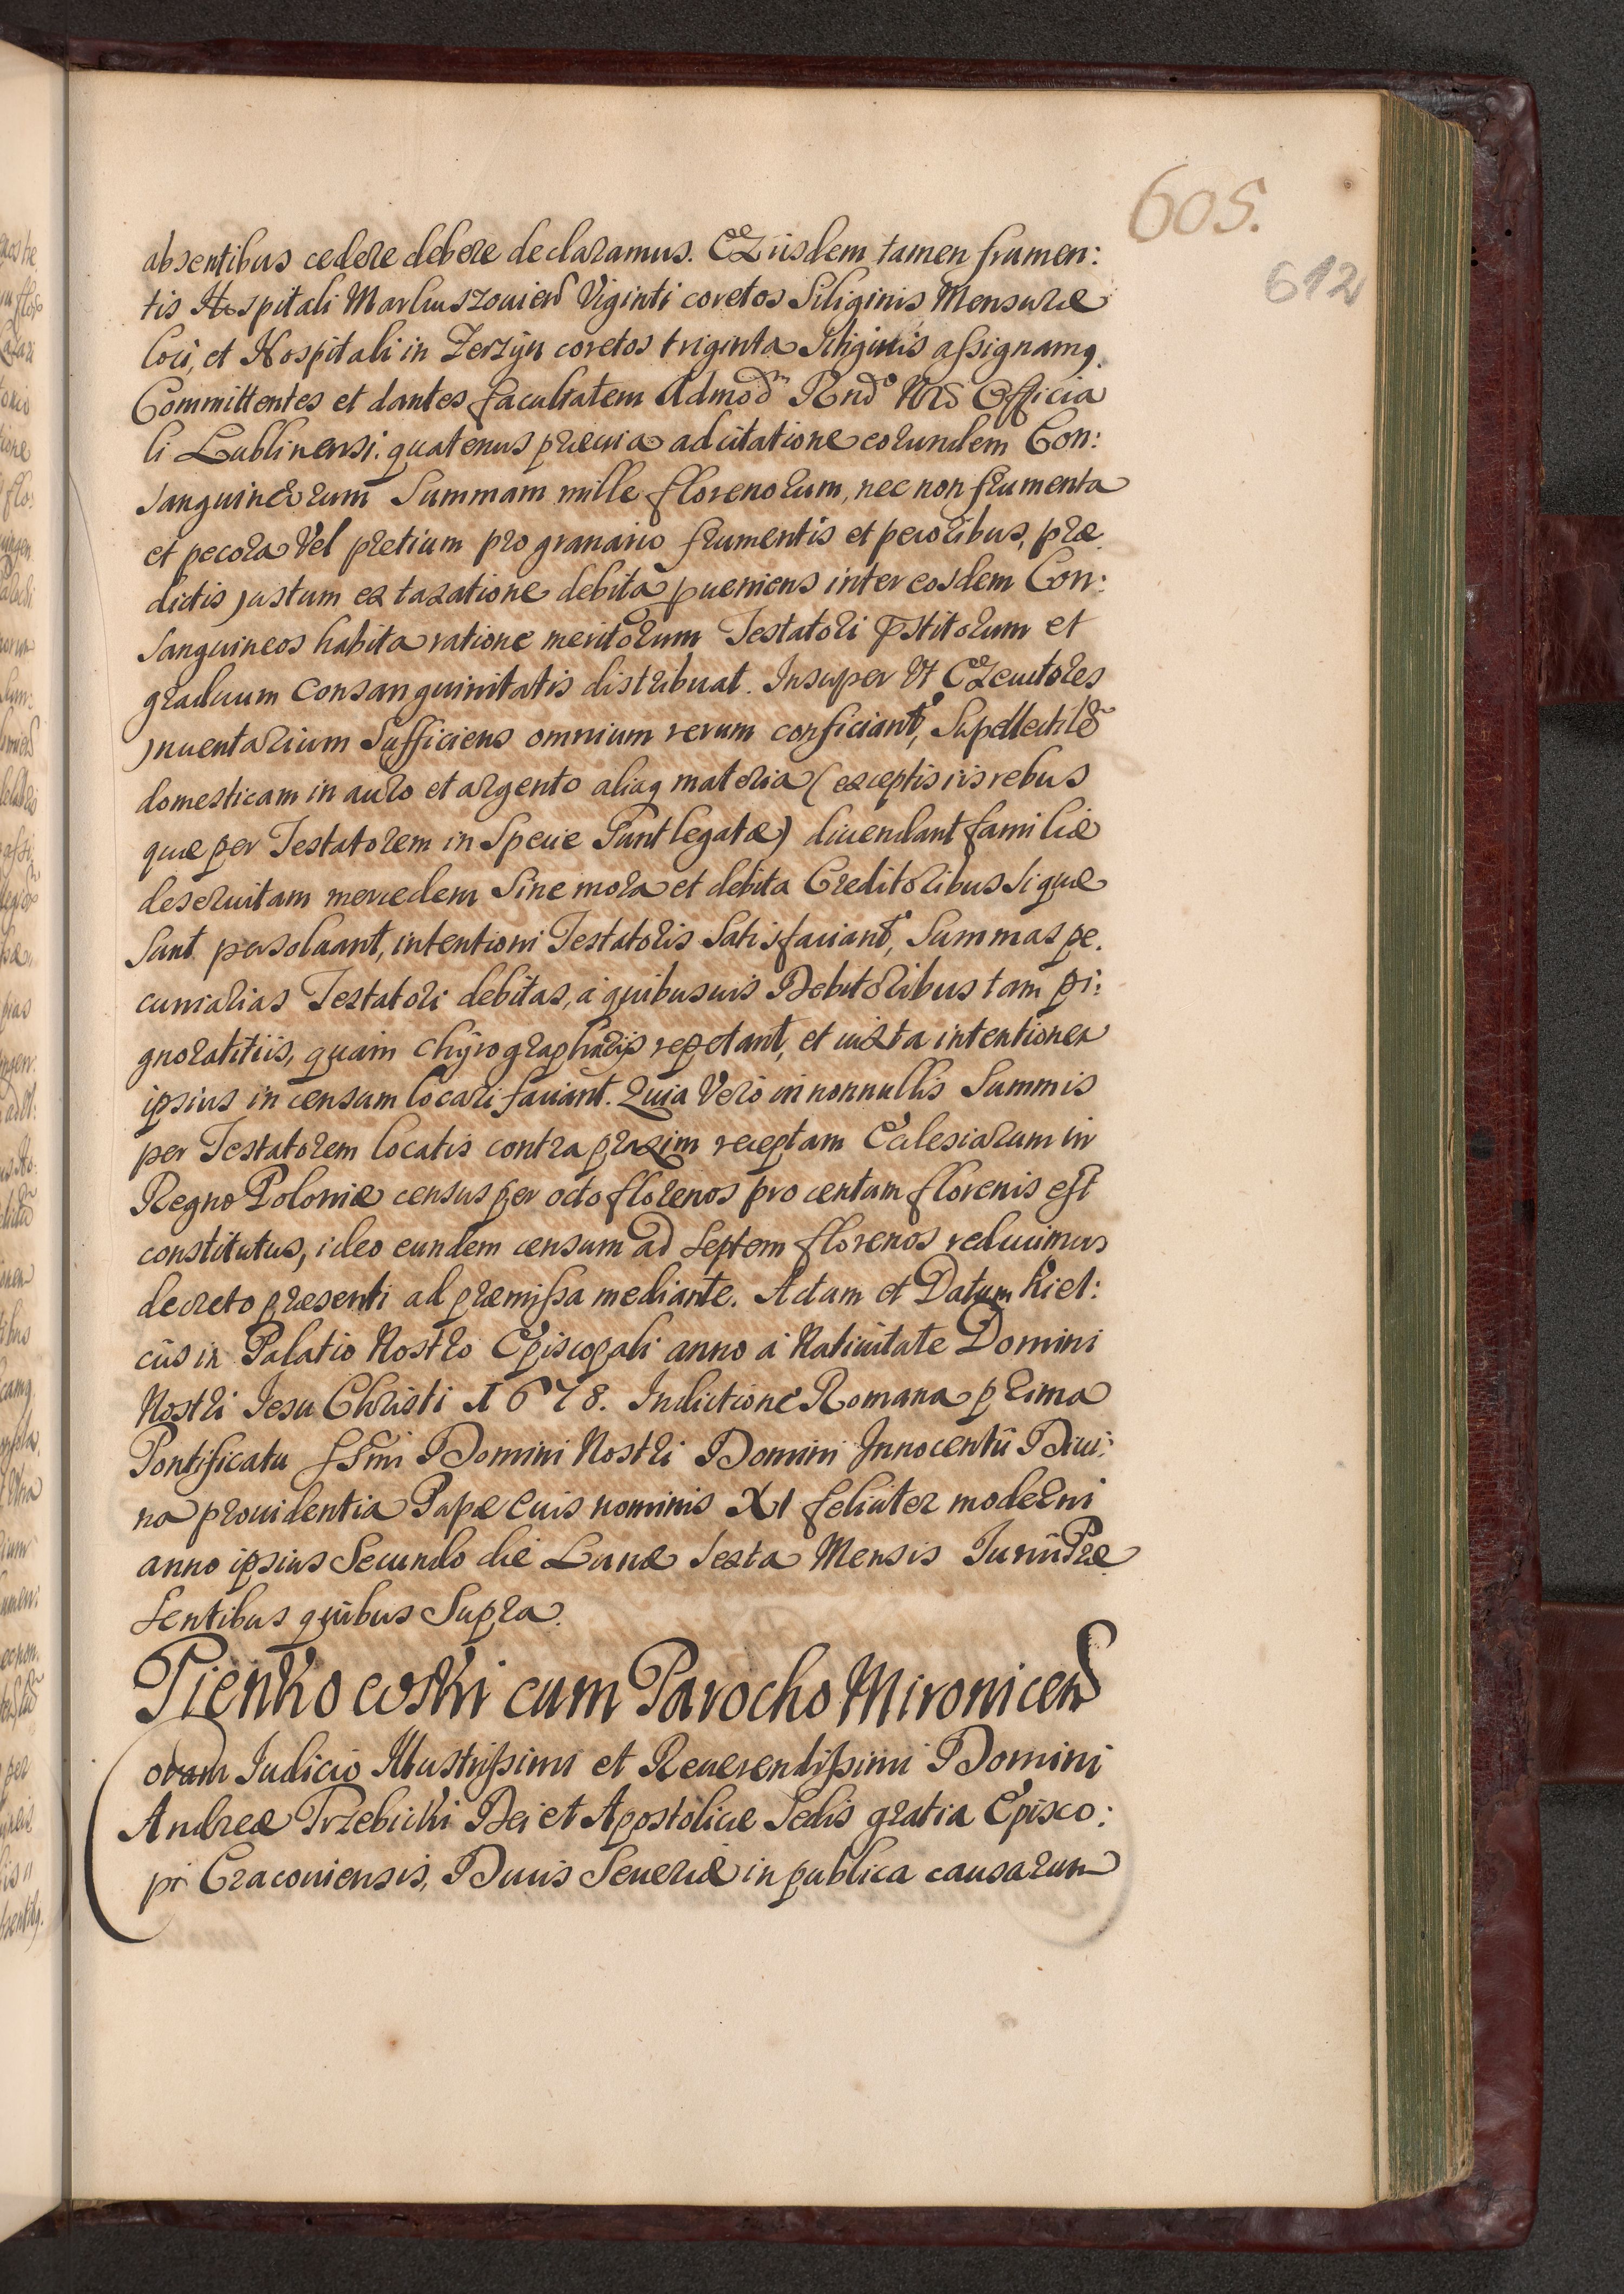 605.
612
absentibus cedere debere declaramus. Ex iisdem tamen frumen:
tis Hospitali Viginti coretos Siliginis Mensuræ
loci, et Hospitali in coretos triginta Siliginis assignamq.
Committentes et dantes facultatem Admod Rnd Nro Officia
li Lublinensi: quatenus præuia adcitatione eorundem Con:
sanguineorum Summam mille florenorum, nec non frumenta
et pecora Vel pretium pro granario frumentis et pecoribus, præ
dictis justum ex taxatione debita pueniens inter eosdem Con:
sanguineos habita ratione meritorum Testatori pstitorum et
graduum Consanguinitatis distribuat. Insuper Vt Exeutores
jnuentarium Sufficiens omnium rerum conficiant, Supellectile
domesticam in auro et argento aliaq materia (exceptis iis rebus
quæ per Testatorem in Specie Sunt legatæ) diuendant familiæ
deseruitam mercedem Sine mora et debita Creditoribus Si quæ
Sunt persoluant, intentioni Testatoris Satisfaciant, Summas pe.
cuniarias Testatori debitas, à quibusuis Debitoribus tam pi:
gnoratitiis, quam chyrographariis repetant, et iuxta intentionem
ipsius in censum locari faciant. Quia Verò in nonnullis Summis
per Testatorem locatis contra praxim receptam Ecclesiarum in
Regno Poloniæ census per octo florenos pro centum florenis est
constitutus, ideo eundem censum ad Septem florenos reducimus
decreto præsenti ad præmissa mediante. Actum et Datum Kiel:
ciis in Palatio Nostro Episcopali anno à Natiuitate Domini
Nostri Iesu Christi 1678. Indictione Romana prima
Pontificatu SSmi Domini Nostri Domini Innocentii Diui:
na prouidentia Papæ Euis nominis XI feliciter moderni
anno ipsius Secundo die Lunæ Sexta Mensis Iunii Præ
Sentibus quibus Supra.
Pienkowski cum Parocho Mironicen
Coram Iudicio Illustrissimi et Reuerendissimi Domini
Andreæ Trzebicki Dei et Apostolicæ Sedis gratia Episco:
pi Cracouiensis, Ducis Seueriæ in publica causarum